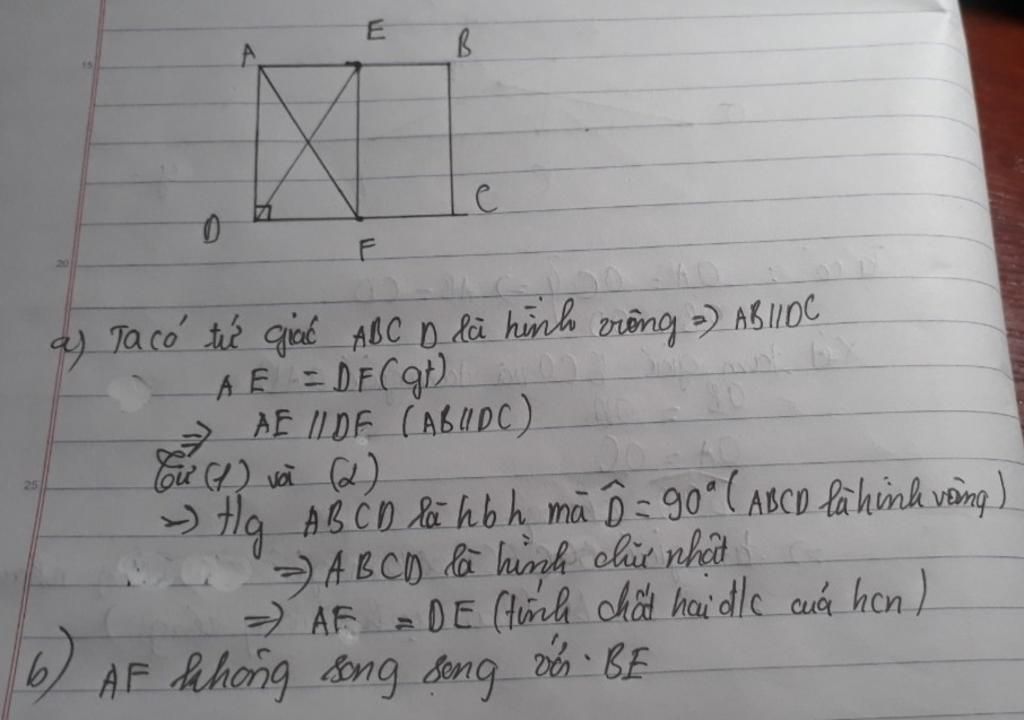 E
A
B
15
D
F
C
20
a) Ta có tứ giác ABCD là hình vuông => AB//DC
AE = DF (gt)
=> AE // DF (AB//DC)
25
Từ (1) và (2)
=> t/g ABCD là hbh mà D̂ = 90° (ABCD là hình vuông)
=> ABCD là hình chữ nhật
=> AF = DE (tính chất hai đ/c cuả hcn)
b) AF không song song với BE